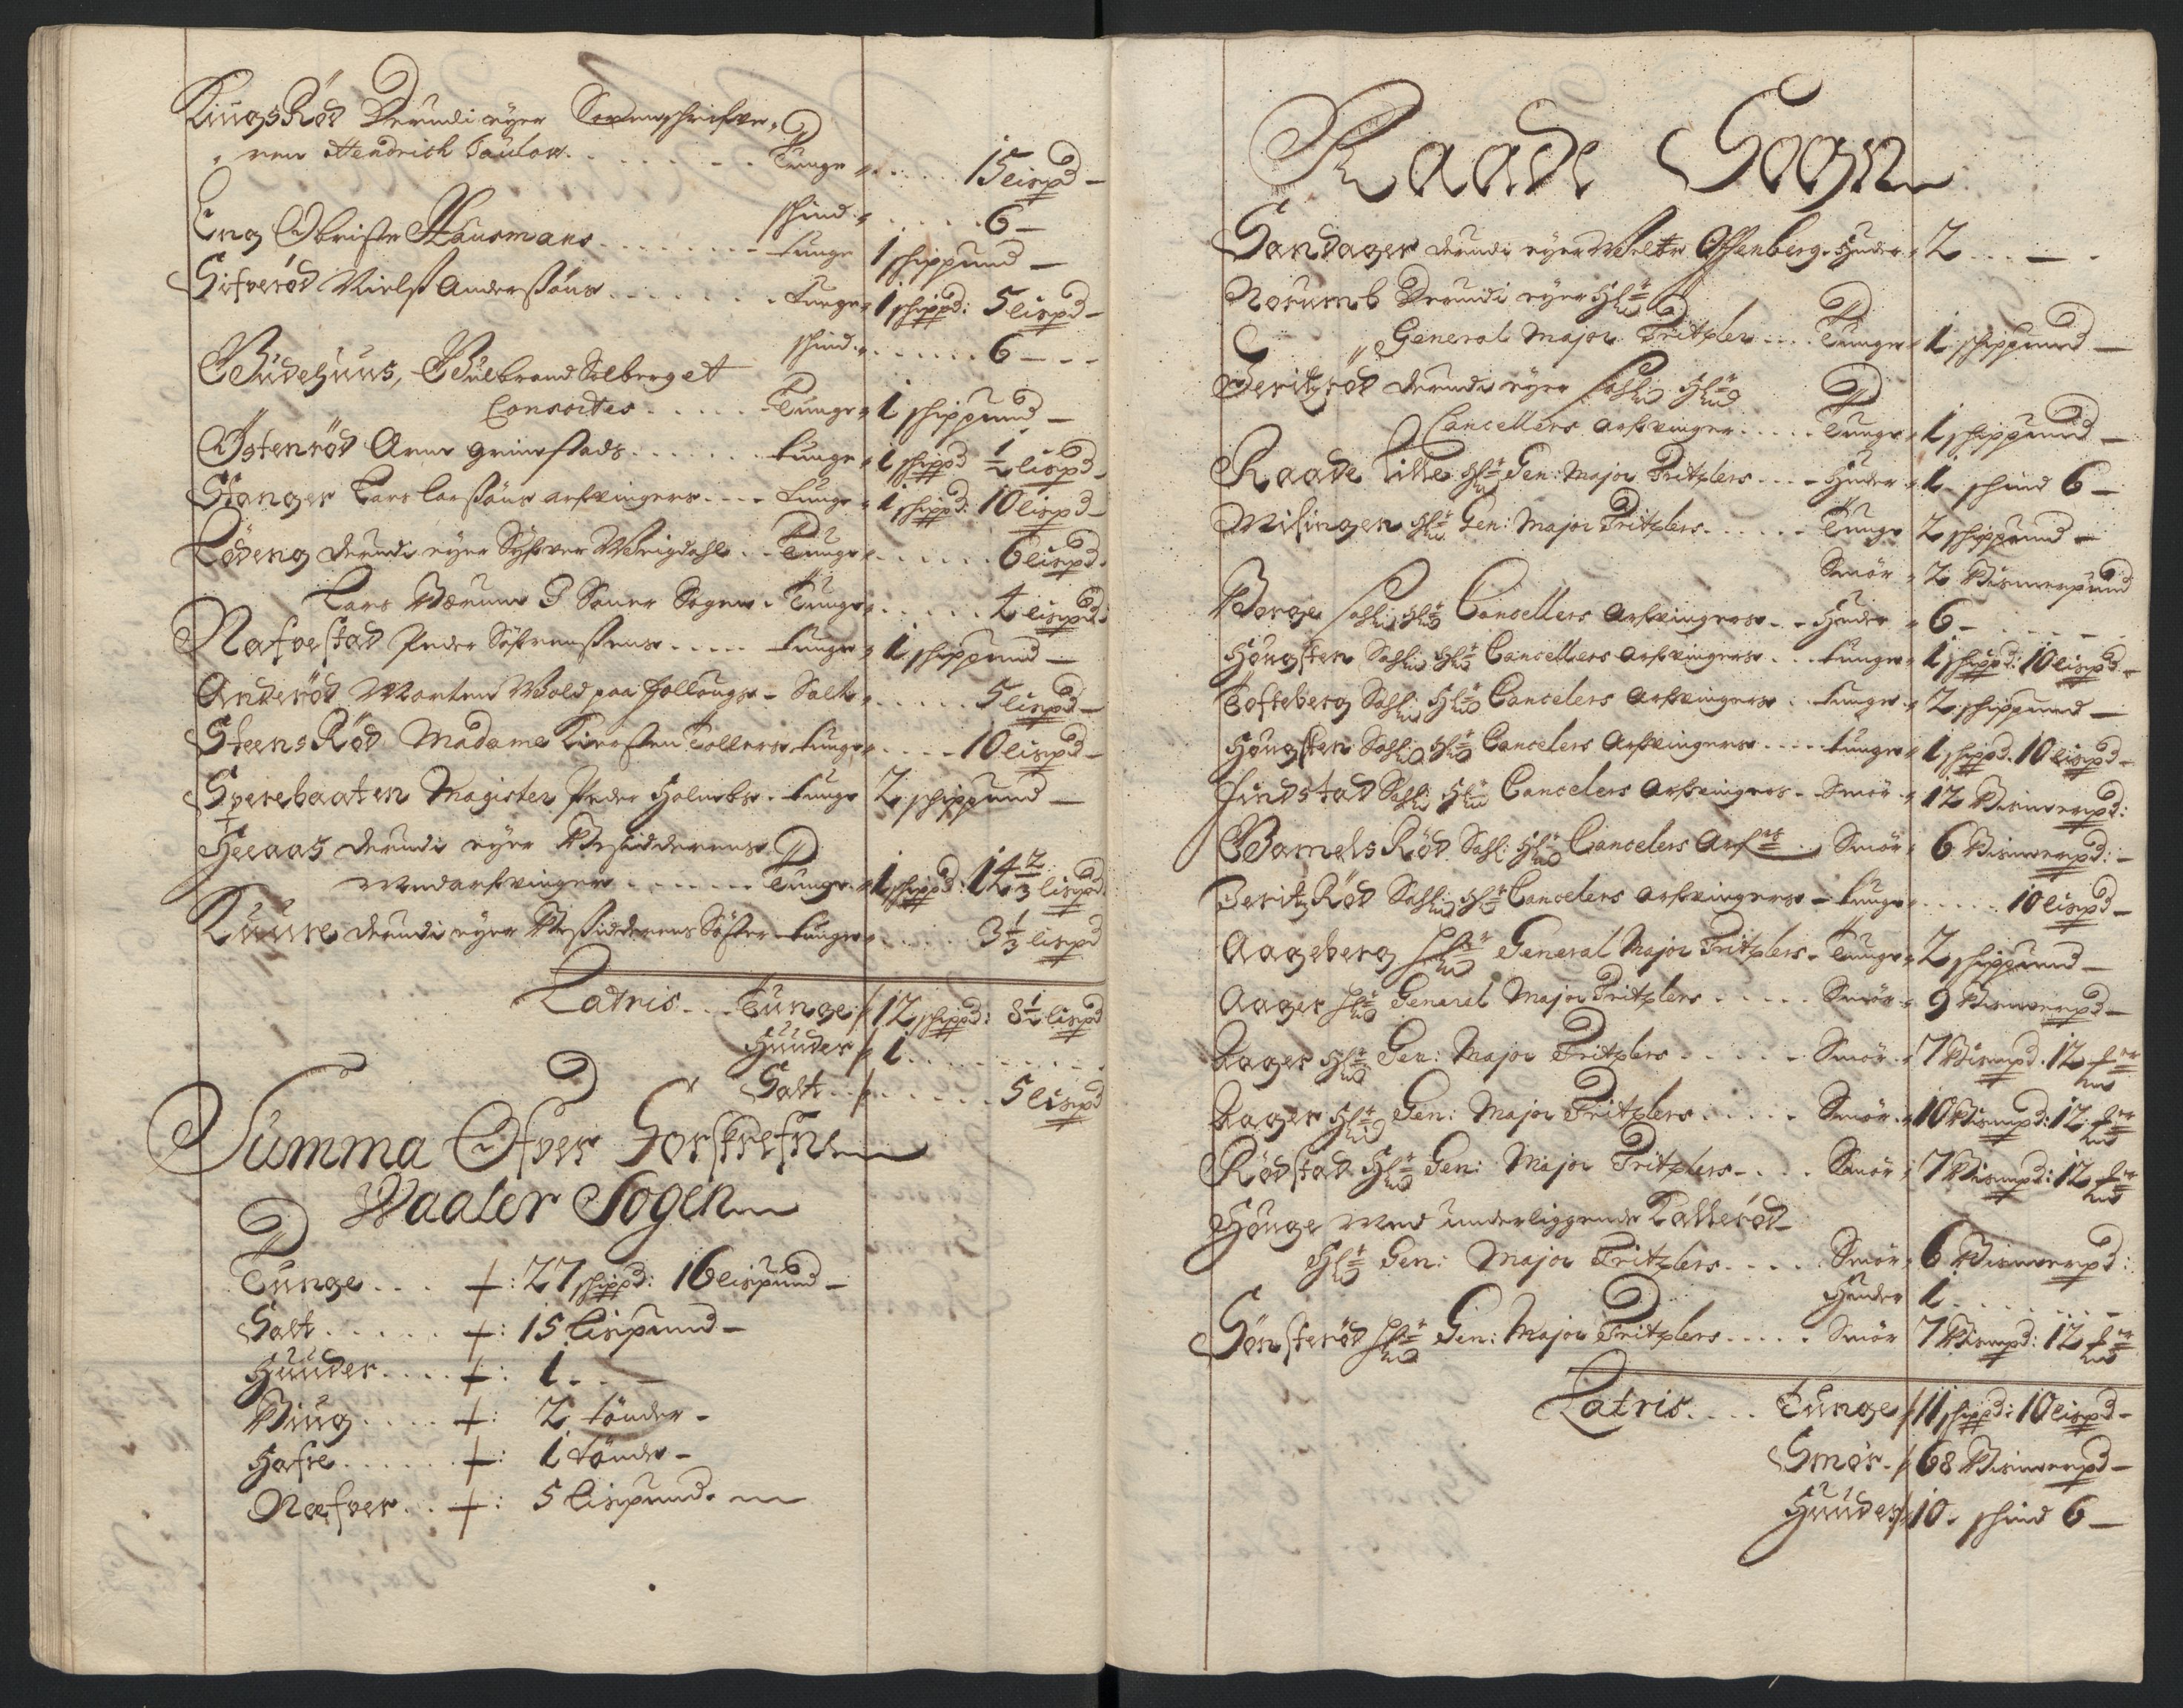 KiugsRöd Derudi eyer Sorenschrifve,,
,,ren Hendrich Paulow . . . . . . Tunge ,, . . . . 15 lispd –
schind ,, . . . . . 6 –
Eng Obriste Hausmans . . . . . . tunge 1 schippund –
Sifveröd Nielss Anderssöns . . . . . . tunge ,, 1 schippd: 5 lispd –
schind ,, . . . . . . 6 – – –
Budehuus, Gulbrand Solberg et
Consortes . . . . . Tunge ,, 1 schippund –
Östenröd Arne Grimstads . . . . . . tunge ,, 1 schippd ½ lispd –
Stanger Lars Larssöns arfvingers . . . tunge ,, 1 schippd: 10 lispd –
Lödeng derudi eyer Sÿfver Weigdahl . . Tunge ,, . . . . . 6 lispd.
Lars Bærum I Soner Sogen . Tunge ,, . . . . . 4 lispd:
Nafvestad Peder Söfrenssens . . . . . tunge ,, 1 schippund –
Anderöd Morten Wold paa Follougs – Salt ,, . . . . . 5 lispd –
SteensRöd Madame Kiersten Tollers tunge ,, . . . . 10 lispd –
Sperebaaten Magister Peder Holmbs . tunge 2 schippund –
Heeaas derudi eyer Besidderens
Medarfvinger . . . . . . . Tunge ,, 1 schippd: 14 2/3 lispd.
Kuure derudi eyer Besidderens Söster tunge ,, . . . . 3 1/3 lispd
Latris . . . Tunge 12 schippd: 8½ lispd
Huuder 1 . . . . . . . . .
Salt . . . . . . . . 5 lispd
Summa Ofver Forskrefne
Waaler Sogen
Tunge . . . : 27 schippd: 16 lispund –
Salt . . . . . : 15 lispund –
Huuder . . . . : 1 . . –
Biug . . . . : 2 tönder –
Hafre . . . . . . : 1 tönde –
Næfver . . . : 5 lispund.
Raade Sogn
Sandager derudi eyer Welb Offenberg . Huder ,, 2 . . . – .
Norumb Derudi eyer Hr
General Major Tritzler . . . . Tunge ,, 1 schippund –
Beritzröd derudi eyer Sahl Hr
Cancellers arfvinger . . . . . Tunge ,, 1 schippund –
Raade lille Hr Gen: Major Tritzlers . . . – Huder ,, 1 – schind 6 –
Misingen Hr Gen: Major Tritzlers . . . . . . Tunge 2 schippund –
Smör ,, 2 Bismerpund
Borge Sahl Hr Cancellers Arfvingers . . – Huder ,, 6 – . . . . . –
Hougsten Sahl Hr Cancellers Arfvingers . . . tunge ,, 1 schippd: 10 lispd –
Tofteberg Sahl Hr Cancelers Arfvingers . . tunge ,, 2 schippund –
Hougsten Sahl Hr Cancelers Arfvingers . . . . tunge ,, 1 schippd. 10 lispd –
Findstad Sahl Hr Cancelers Arfvingers . Smör ,, 12 Bismerpd:
GamelsRöd Sahl: Hr Cancelers Arf . . Smör ,, 6 Bismerpd: –
BeritzRöd Sahl Hr Cancelers Arfvingers – tunge ,, . . . . . 10 lispd –
Aageberg Hr General Major Tritzlers – Tunge ,, 2 schippund –
Aager Hr General Major Tritzlers . . . . . Smör ,, 9 Bismerpd –
Aager Hr Gen: Major Tritzlers . . . . . . Smör ,, 7 Bismpd. 12
Aager Hr Gen: Major Tritzlers . . . . . Smör ,, 10 Bismpd: 12
Rödstad Hr Gen: Major Tritzlers – . . . Smör ,, 7 Bismpd: 12
Houge Med underliggende Latteröd
Hr Gen: Major Tritzlers . . . . Smör ,, 6 Bismerpd:
Huuder 1 . . . . . . . –
Sönsteröd Hr Gen: Major Tritzlers . . . . . Smör 7 Bismpd: 12
Latris . . . . Tunge 11 schippd: 10 lispd –
Smör . 68 Bismerpd –
Huuder 10 – schind 6 –